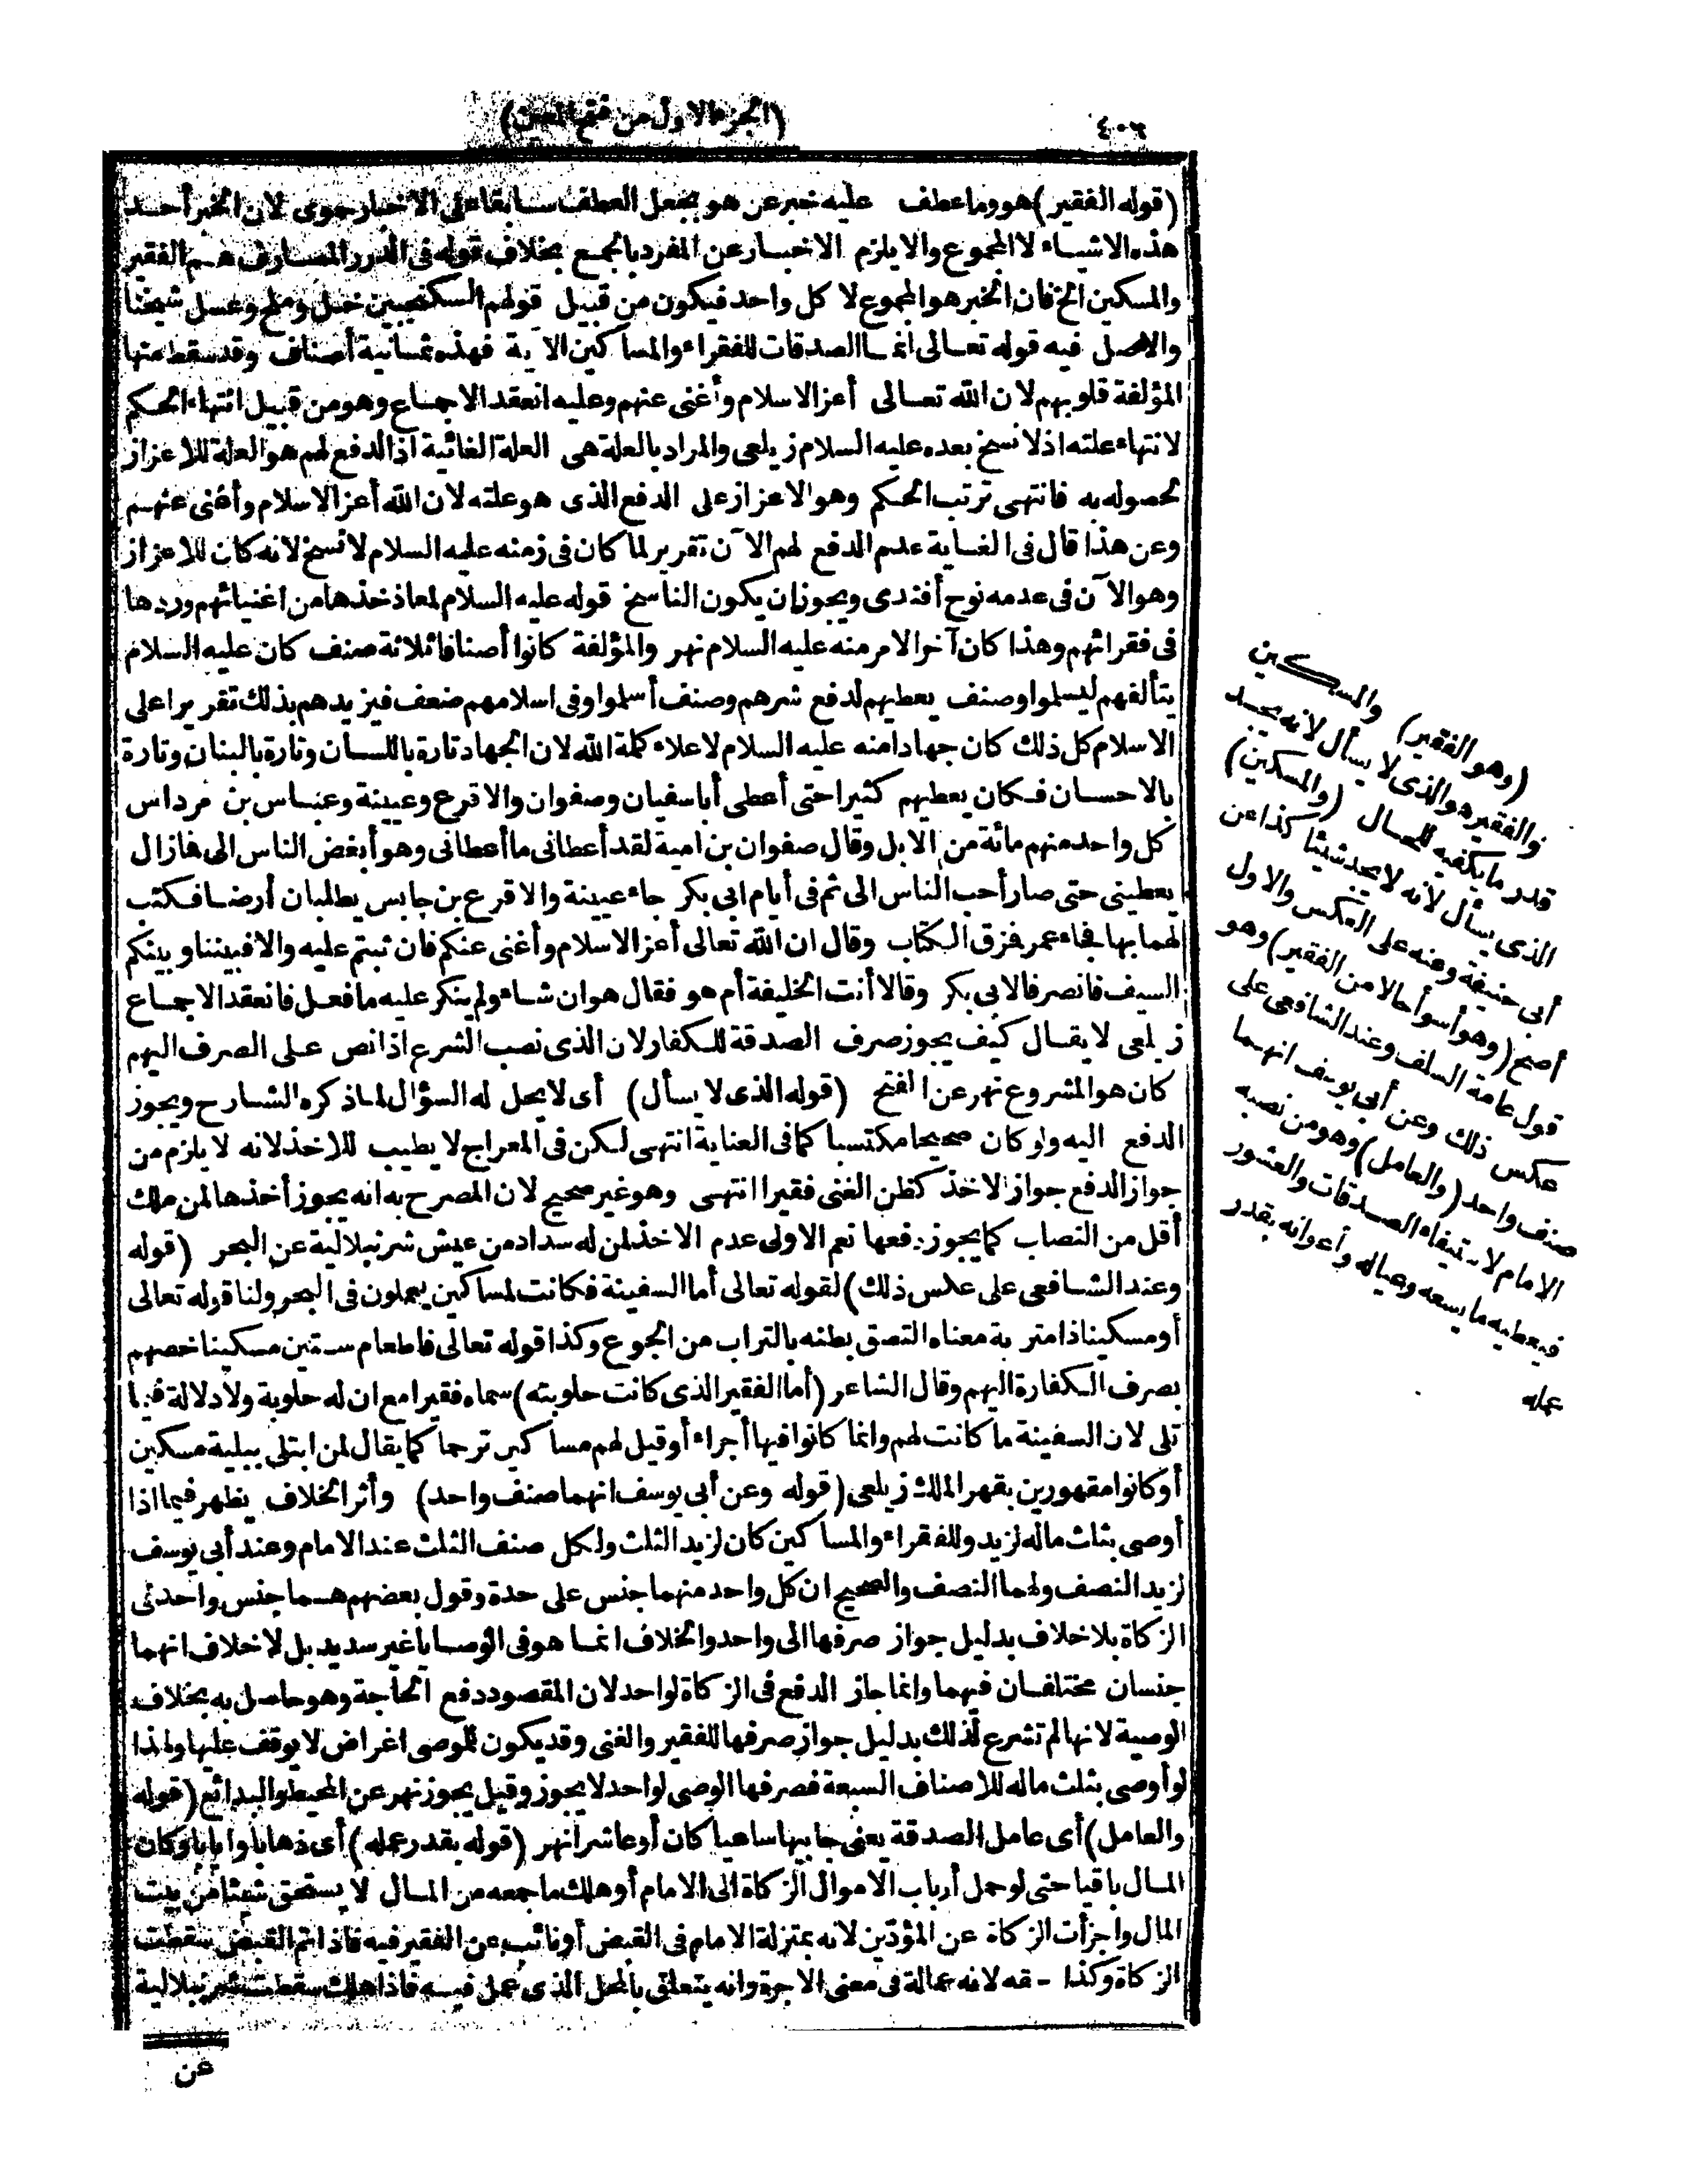 ٤٠٦
(الجزء الاول من فتح المعين)
(قوله الفقير) هو وما عطف عليه خبر عن هو بجعل العطف سابقا على الاخبار حموى لان الخبر أحد
هذه الاشياء لا المجموع والا يلزم الاخبار عن المفرد بالجمع بخلاف قوله فى الدرر المصارف هم الفقير
والمسكين الخ فان الخبر هو المجموع لا كل واحد فيكون من قبيل قولهم السكنجبين خل وملح وعسل شيخنا
والاصل فيه قوله تعالى انما الصدقات للفقراء والمساكين الآية فهذه ثمانية أصناف وقد سقط منها
المؤلفة قلوبهم لان الله تعالى أعز الاسلام وأغنى عنهم وعليه انعقد الاجماع وهو من قبيل انتهاء الحكم
لانتهاء علته اذ لا نسخ بعده عليه السلام زيلعى والمراد بالعلة هى العلة الغائية اذ الدفع لهم هو العلة للاعزاز
لحصوله به فانتهى ترتب الحكم وهو الاعزاز على الدفع الذى هو علته لان الله أعز الاسلام وأغنى عنهم
وعن هذا قال فى الغاية عدم الدفع لهم الآن تقرير لما كان فى زمنه عليه السلام لا نسخ لانه كان للاعزاز
وهو الآن فى عدمه نوح أفندى ويجوز ان يكون الناسخ قوله عليه السلام لمعاذ خذها من اغنيائهم وردها
فى فقرائهم وهذا كان آخر الامر منه عليه السلام نهر والمؤلفة كانوا أصنافا ثلاثة صنف كان عليه السلام
يتألفهم ليسلموا وصنف يعطيهم لدفع شرهم وصنف أسلموا وفى اسلامهم ضعف فيزيدهم بذلك تقريرا على
الاسلام كل ذلك كان جهادا منه عليه السلام لاعلاء كلمة الله لان الجهاد تارة باللسان وتارة بالبنان وتارة
بالاحسان فكان يعطيهم كثيرا حتى أعطى أبا سفيان وصفوان والاقرع وعيينة وعباس بن مرداس
كل واحد منهم مائة من الابل وقال صفوان بن امية لقد أعطانى ما أعطانى وهو أبغض الناس الى فما زال
يعطينى حتى صار أحب الناس الى ثم فى أيام ابى بكر جاء عيينة والاقرع بن حابس يطلبان أرضا فكتب
لهما بها فجاء عمر فمزق الكتاب وقال ان الله تعالى أعز الاسلام وأغنى عنكم فان ثبتم عليه والا فبيننا وبينكم
السيف فانصرفا لابى بكر وقالا أنت الخليفة أم هو فقال هو ان شاء ولم ينكر عليه ما فعل فانعقد الاجماع
زيلعى لا يقال كيف يجوز صرف الصدقة للكفار لان الذى نصب الشرع اذا نص على الصرف اليهم
كان هو المشروع نهر عن الفتح (قوله الذى لا يسأل) أى لا يحل له السؤال لما ذكره الشارح ويجوز
الدفع اليه ولو كان صحيحا مكتسبا كما فى العناية انتهى لكن فى المعراج لا يطيب للاخذ لانه لا يلزم من
جواز الدفع جواز الاخذ كظن الغنى فقيرا انتهى وهو غير صحيح لان المصرح به انه يجوز أخذها لمن ملك
أقل من النصاب كما يجوز دفعها نعم الاولى عدم الاخذ لمن له سداد من عيش شرنبلالية عن البحر (قوله
وعند الشافعى على عكس ذلك) لقوله تعالى أما السفينة فكانت لمساكين يعملون فى البحر ولنا قوله تعالى
أو مسكينا ذا متربة معناه التصق بطنه بالتراب من الجوع وكذا قوله تعالى فاطعام ستين مسكينا خصهم
بصرف الكفارة اليهم وقال الشاعر (أما الفقير الذى كانت حلوبته) سماه فقيرا مع ان له حلوبة ولا دلالة فيما
تلى لان السفينة ما كانت لهم وانما كانوا فيها أجراء أو قيل لهم مساكين ترحما كما يقال لمن ابتلى ببلية مسكين
أو كانوا مقهورين بقهر الملك زيلعى (قوله وعن أبى يوسف انهما صنف واحد) وأثر الخلاف يظهر فيما اذا
أوصى بثلث ماله لزيد وللفقراء والمساكين كان لزيد الثلث ولكل صنف الثلث عند الامام وعند أبى يوسف
لزيد النصف ولهما النصف والصحيح ان كل واحد منهما جنس على حدة وقول بعضهم هما جنس واحد فى
الزكاة بلا خلاف بدليل جواز صرفها الى واحد والخلاف انما هو فى الوصايا غير سديد بل لا خلاف انهما
جنسان مختلفان فيهما وانما جاز الدفع فى الزكاة لواحد لان المقصود دفع الحاجة وهو حاصل به بخلاف
الوصية لانها لم تشرع لذلك بدليل جواز صرفها للفقير والغنى وقد يكون للموصى اغراض لا يوقف عليها ولهذا
لو أوصى بثلث ماله للاصناف السبعة فصرفها الوصى لواحد لا يجوز وقيل يجوز نهر عن المحيط والبدائع (قوله
والعامل) أى عامل الصدقة يعنى جابيها ساعيا كان أو عاشرا نهر (قوله بقدر عمله) أى ذهابا وايابا وكان
المال باقيا حتى لو حمل أرباب الاموال الزكاة الى الامام أو هلك ما جمعه من المال لا يستحق شيئا من بيت
المال واجزأت الزكاة عن المؤدين لانه بمنزلة الامام فى القبض أو نائب عن الفقير فيه فاذا تم القبض سقطت
الزكاة وكذا حقه لانه عمالة فى معنى الاجرة وانه يتعلق بالمحل الذى عمل فيه فاذا هلك سقطت شرنبلالية
عن
(وهو الفقير) والمسكين
فالفقير هو الذى لا يسأل لانه يجد
قدر ما يكفيه للحال (والمسكين)
الذى يسأل لانه لا يجد شيئا كذا عن
أبى حنيفة وعنه على العكس والاول
أصح (وهو أسوأ حالا من الفقير) وهو
قول عامة السلف وعند الشافعى على
عكس ذلك وعن أبى يوسف انهما
صنف واحد (والعامل) وهو من نصبه
الامام لاستيفاء الصدقات والعشور
فيعطيه ما يسعه وعياله وأعوانه بقدر
عمله